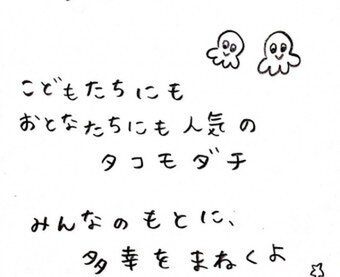 こどもたちにも
おとなたちにも人気の
タコモダチ
みんなのもとに、
多幸をまねくよ